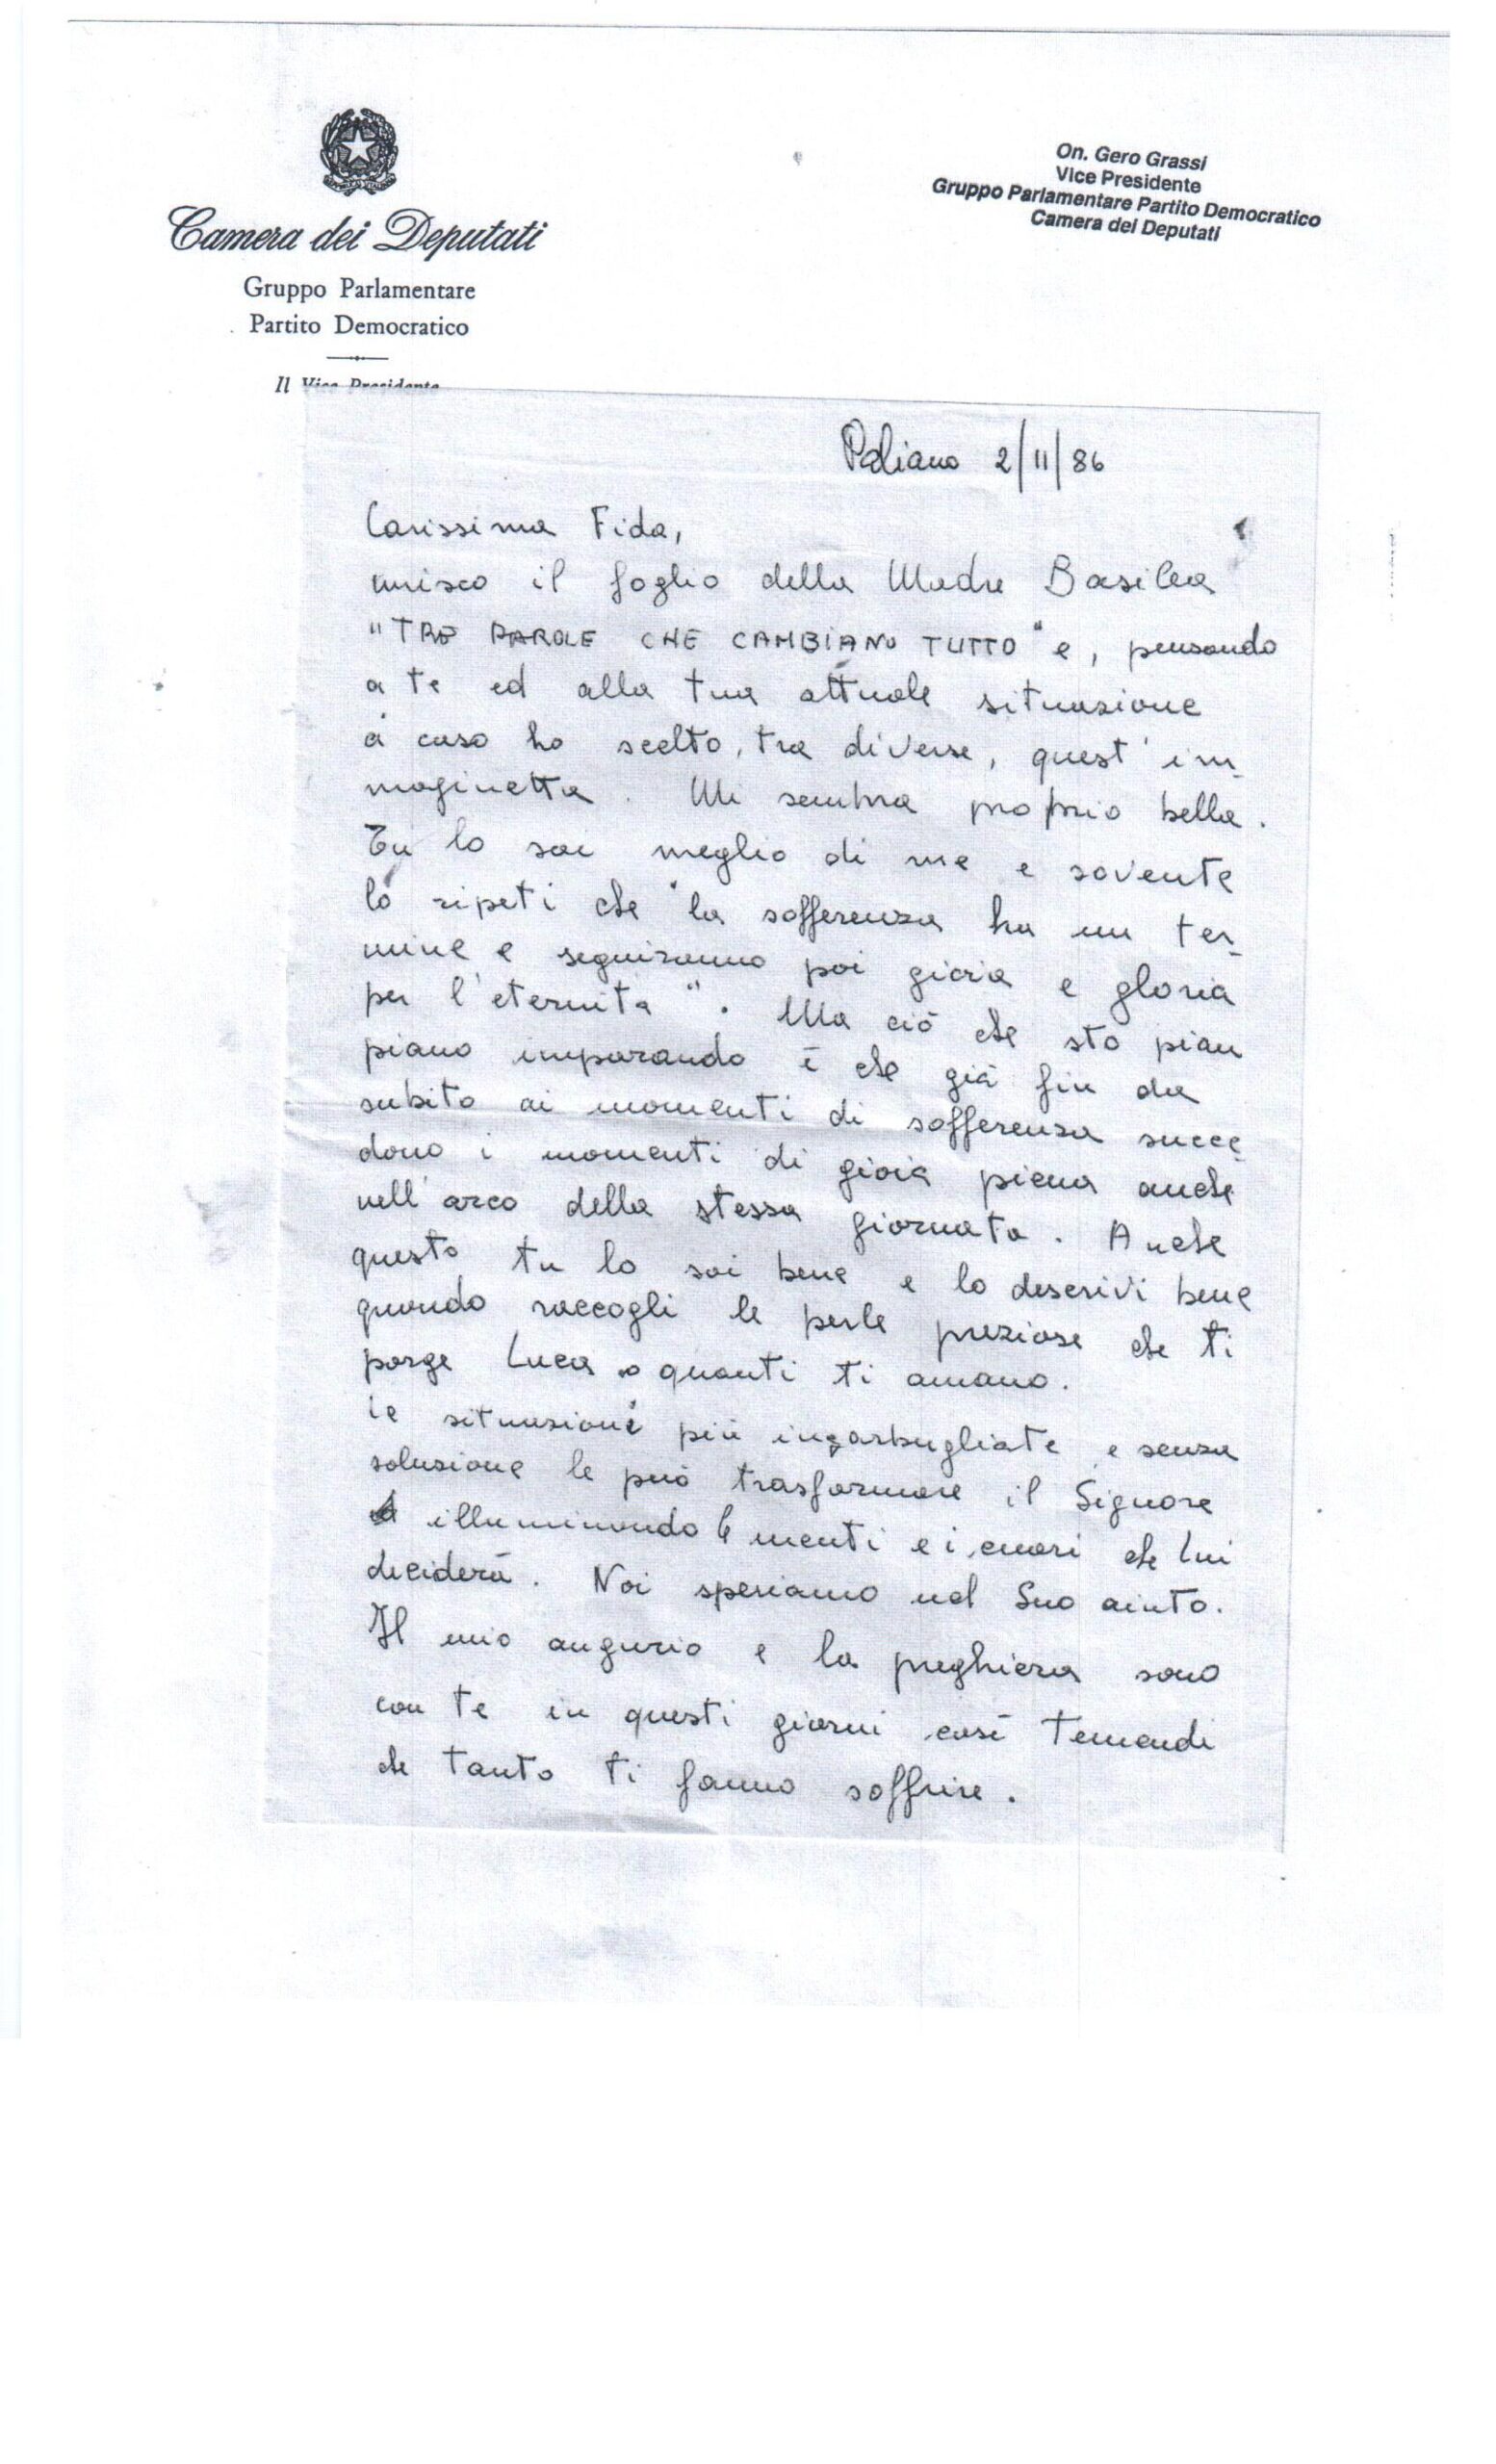 Camera dei Deputati
Gruppo Parlamentare
Partito Democratico
Il Vice Presidente
On. Gero Grassi
Vice Presidente
Gruppo Parlamentare Partito Democratico
Camera dei Deputati
Paliano 2/11/86
Carissima Fida,
unisco il foglio della Madre Basilea
"TRE PAROLE CHE CAMBIANO TUTTO" e, pensando
a te ed alla tua attuale situazione
a caso ho scelto, tra diverse, quest'im-
maginetta. Mi sembra proprio bella.
Tu lo sai meglio di me e sovente
lo ripeti che "la sofferenza ha un ter-
mine e seguiranno poi gioia e gloria
per l'eternità". Ma ciò che sto pian
piano imparando è che già fin da
subito ai momenti di sofferenza succe-
dono i momenti di gioia piena anche
nell'arco della stessa giornata. Anche
questo tu lo sai bene e lo descrivi bene
quando raccogli le perle preziose che ti
porge Luca o quanti ti amano.
Le situazioni più ingarbugliate e senza
soluzione le può trasformare il Signore
illuminando le menti e i cuori che Lui
deciderà. Noi speriamo nel Suo aiuto.
Il mio augurio e la preghiera sono
con te in questi giorni così tremendi
che tanto ti fanno soffrire.